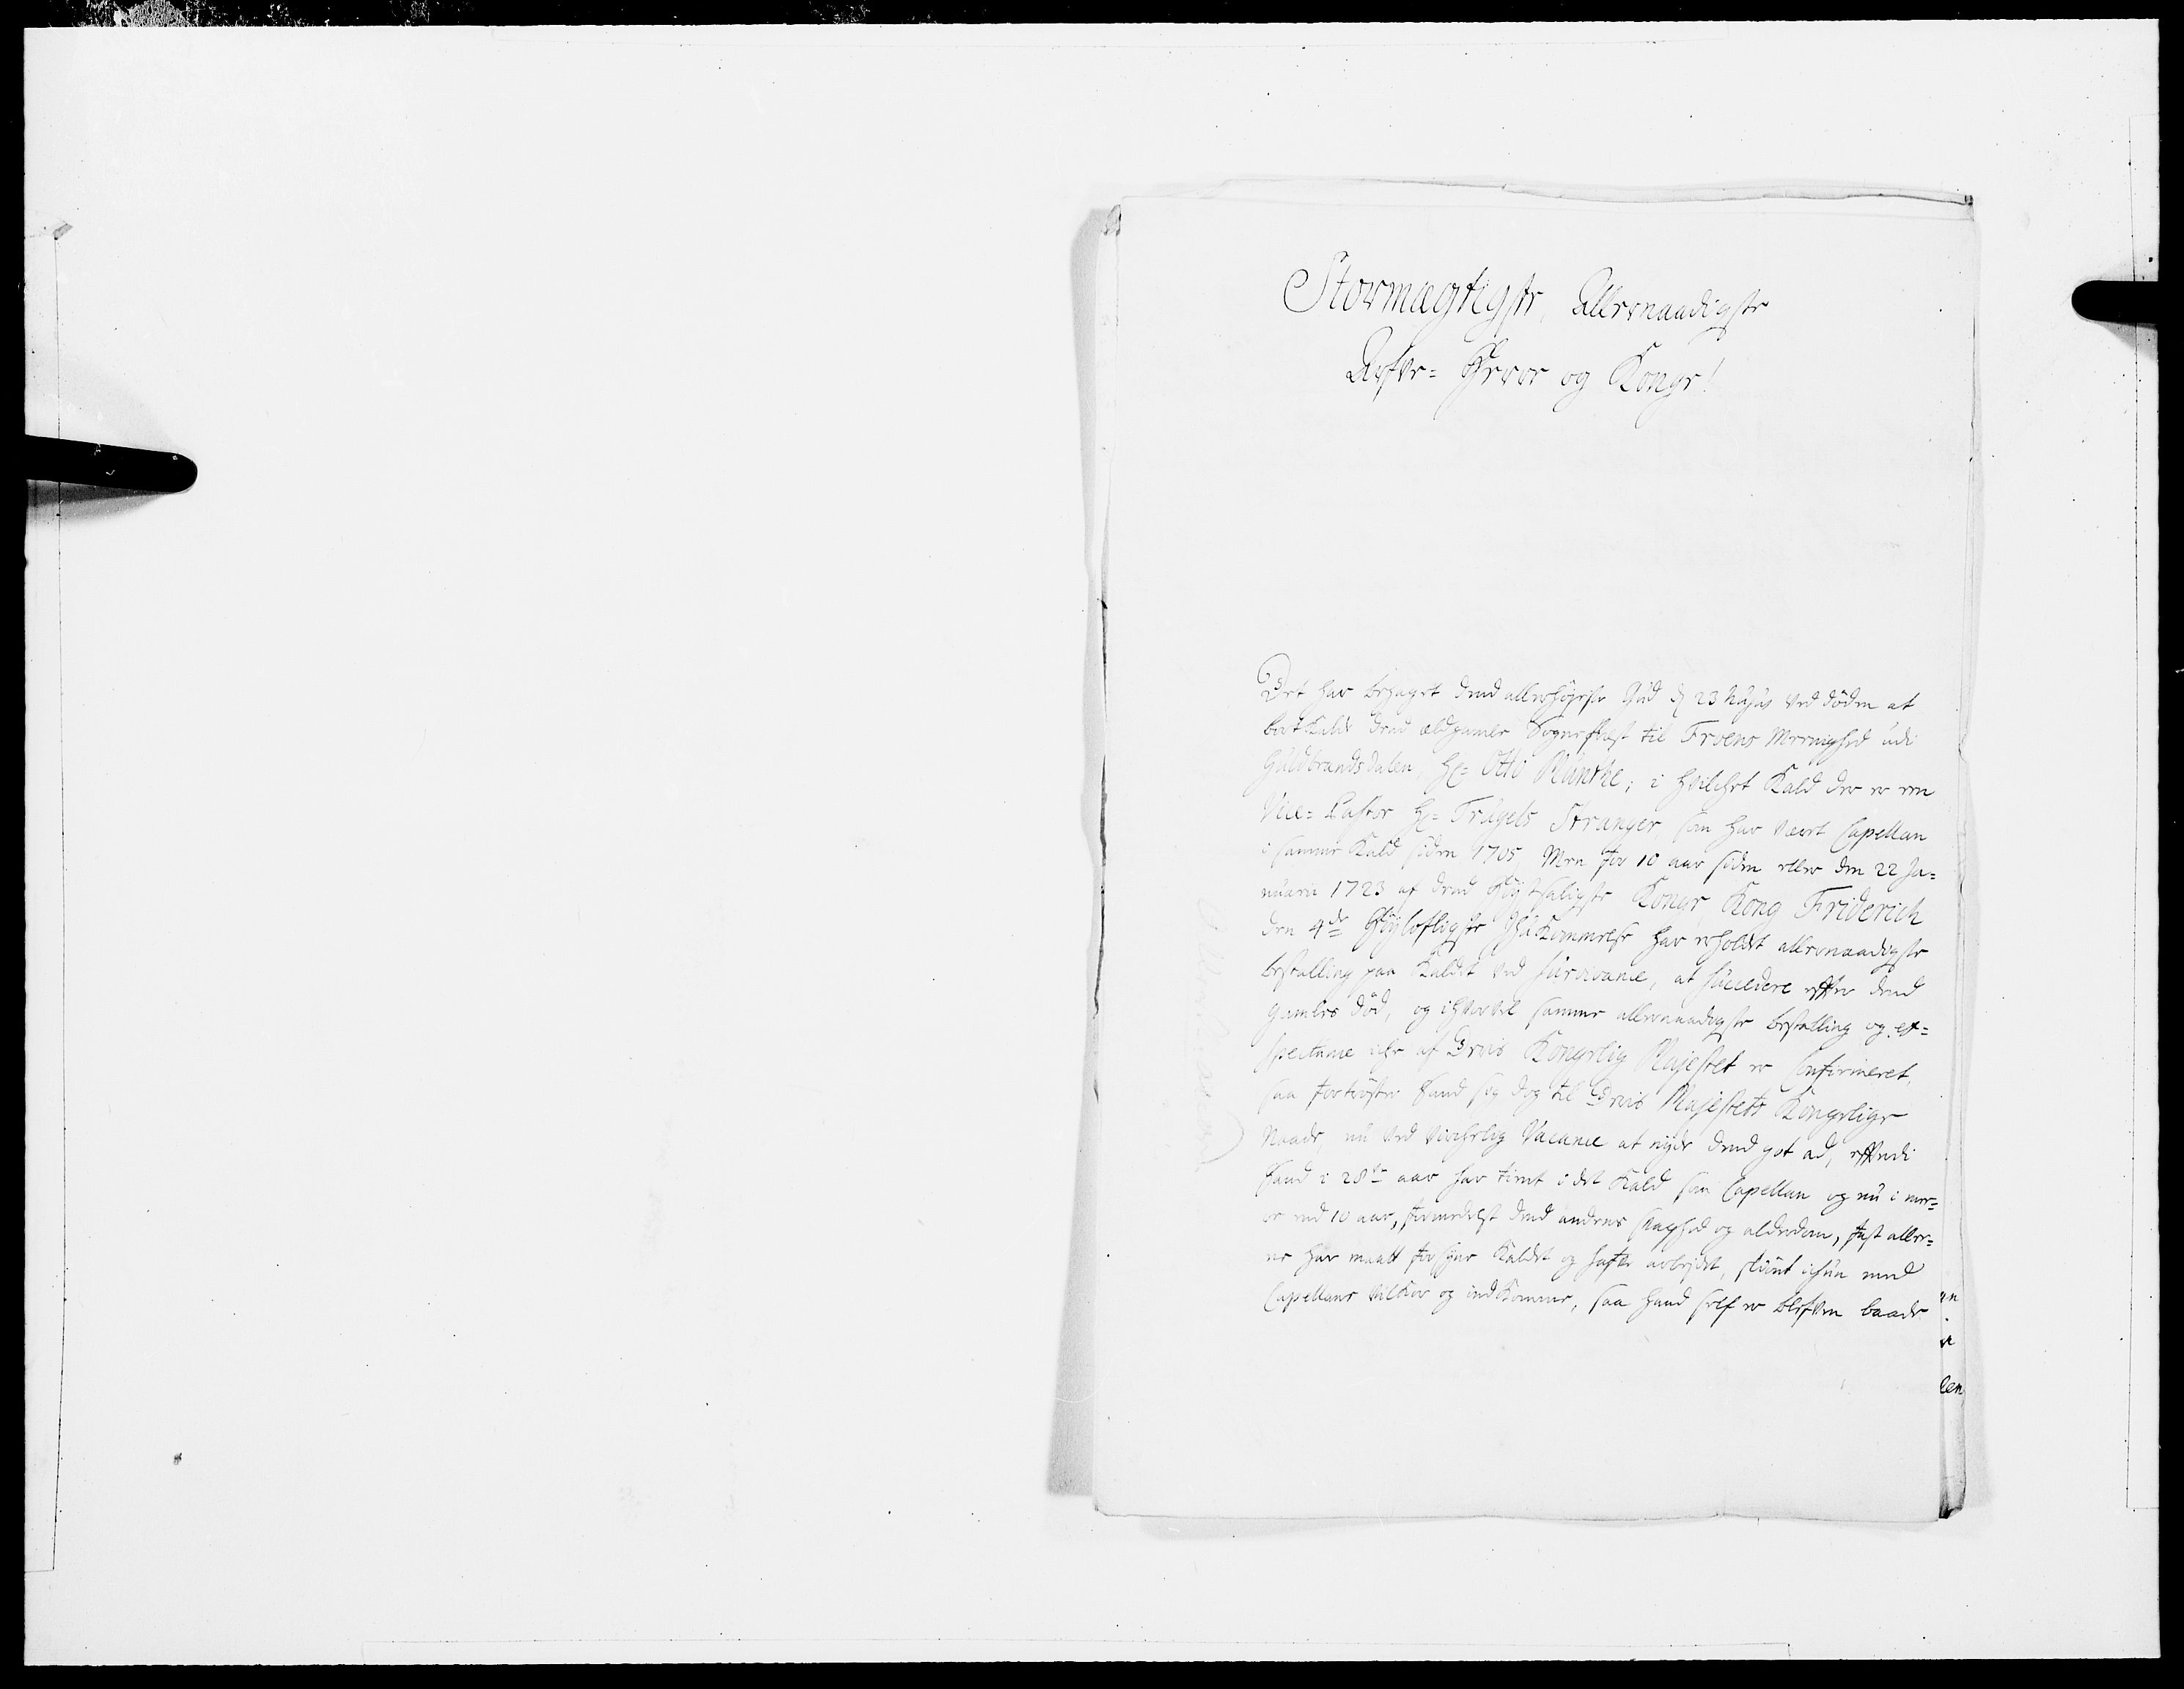 Stormægtigste, Allernaadigste
Arfve= Herre og Konge!
Det har behaget dend allerhöyeste Gud d. 23 hujus ved döden at
bortkalde dend ældgamle Sognepræst til Froens Meenighed udi
Guldbrandsdalen, Hr= Otto Munthe; i hvilchet Kald der er een
Vice= Pastor Hr= Trugels Stranger, som har været Capellan
i samme Kald siden 1705, Men for 10 aar siden eller den 22 Ja=
nuarii 1723 af dend Höystsaligste Konge, Kong Friderich
den 4de Höylofligste Ihukommelse har erholdt allernaadigste
bestalling paa Kaldet ved survivance, at succedere efter dend
gamles död, og ihvorvel samme allernaadigste bestalling og ex=
spectance iche af Eders Kongelig Majestet er confirmeret,
saa fortröster hand sig dog til Eders Majestets Kongelige
Naade, nu ved virchelig Vacance at nyde dend got ad, efterdi
hand i 28de aar har tient i det Kald som Capellan og nu i mee=
re end 10 aar, formedelst dend andens svaghed og alderdom, fast alle=
ne har maatt forsyne Kaldet og hafte arbeydet, skiönt ichun med
Capellans vilkor og indkomme, saa hand self er blefven baade